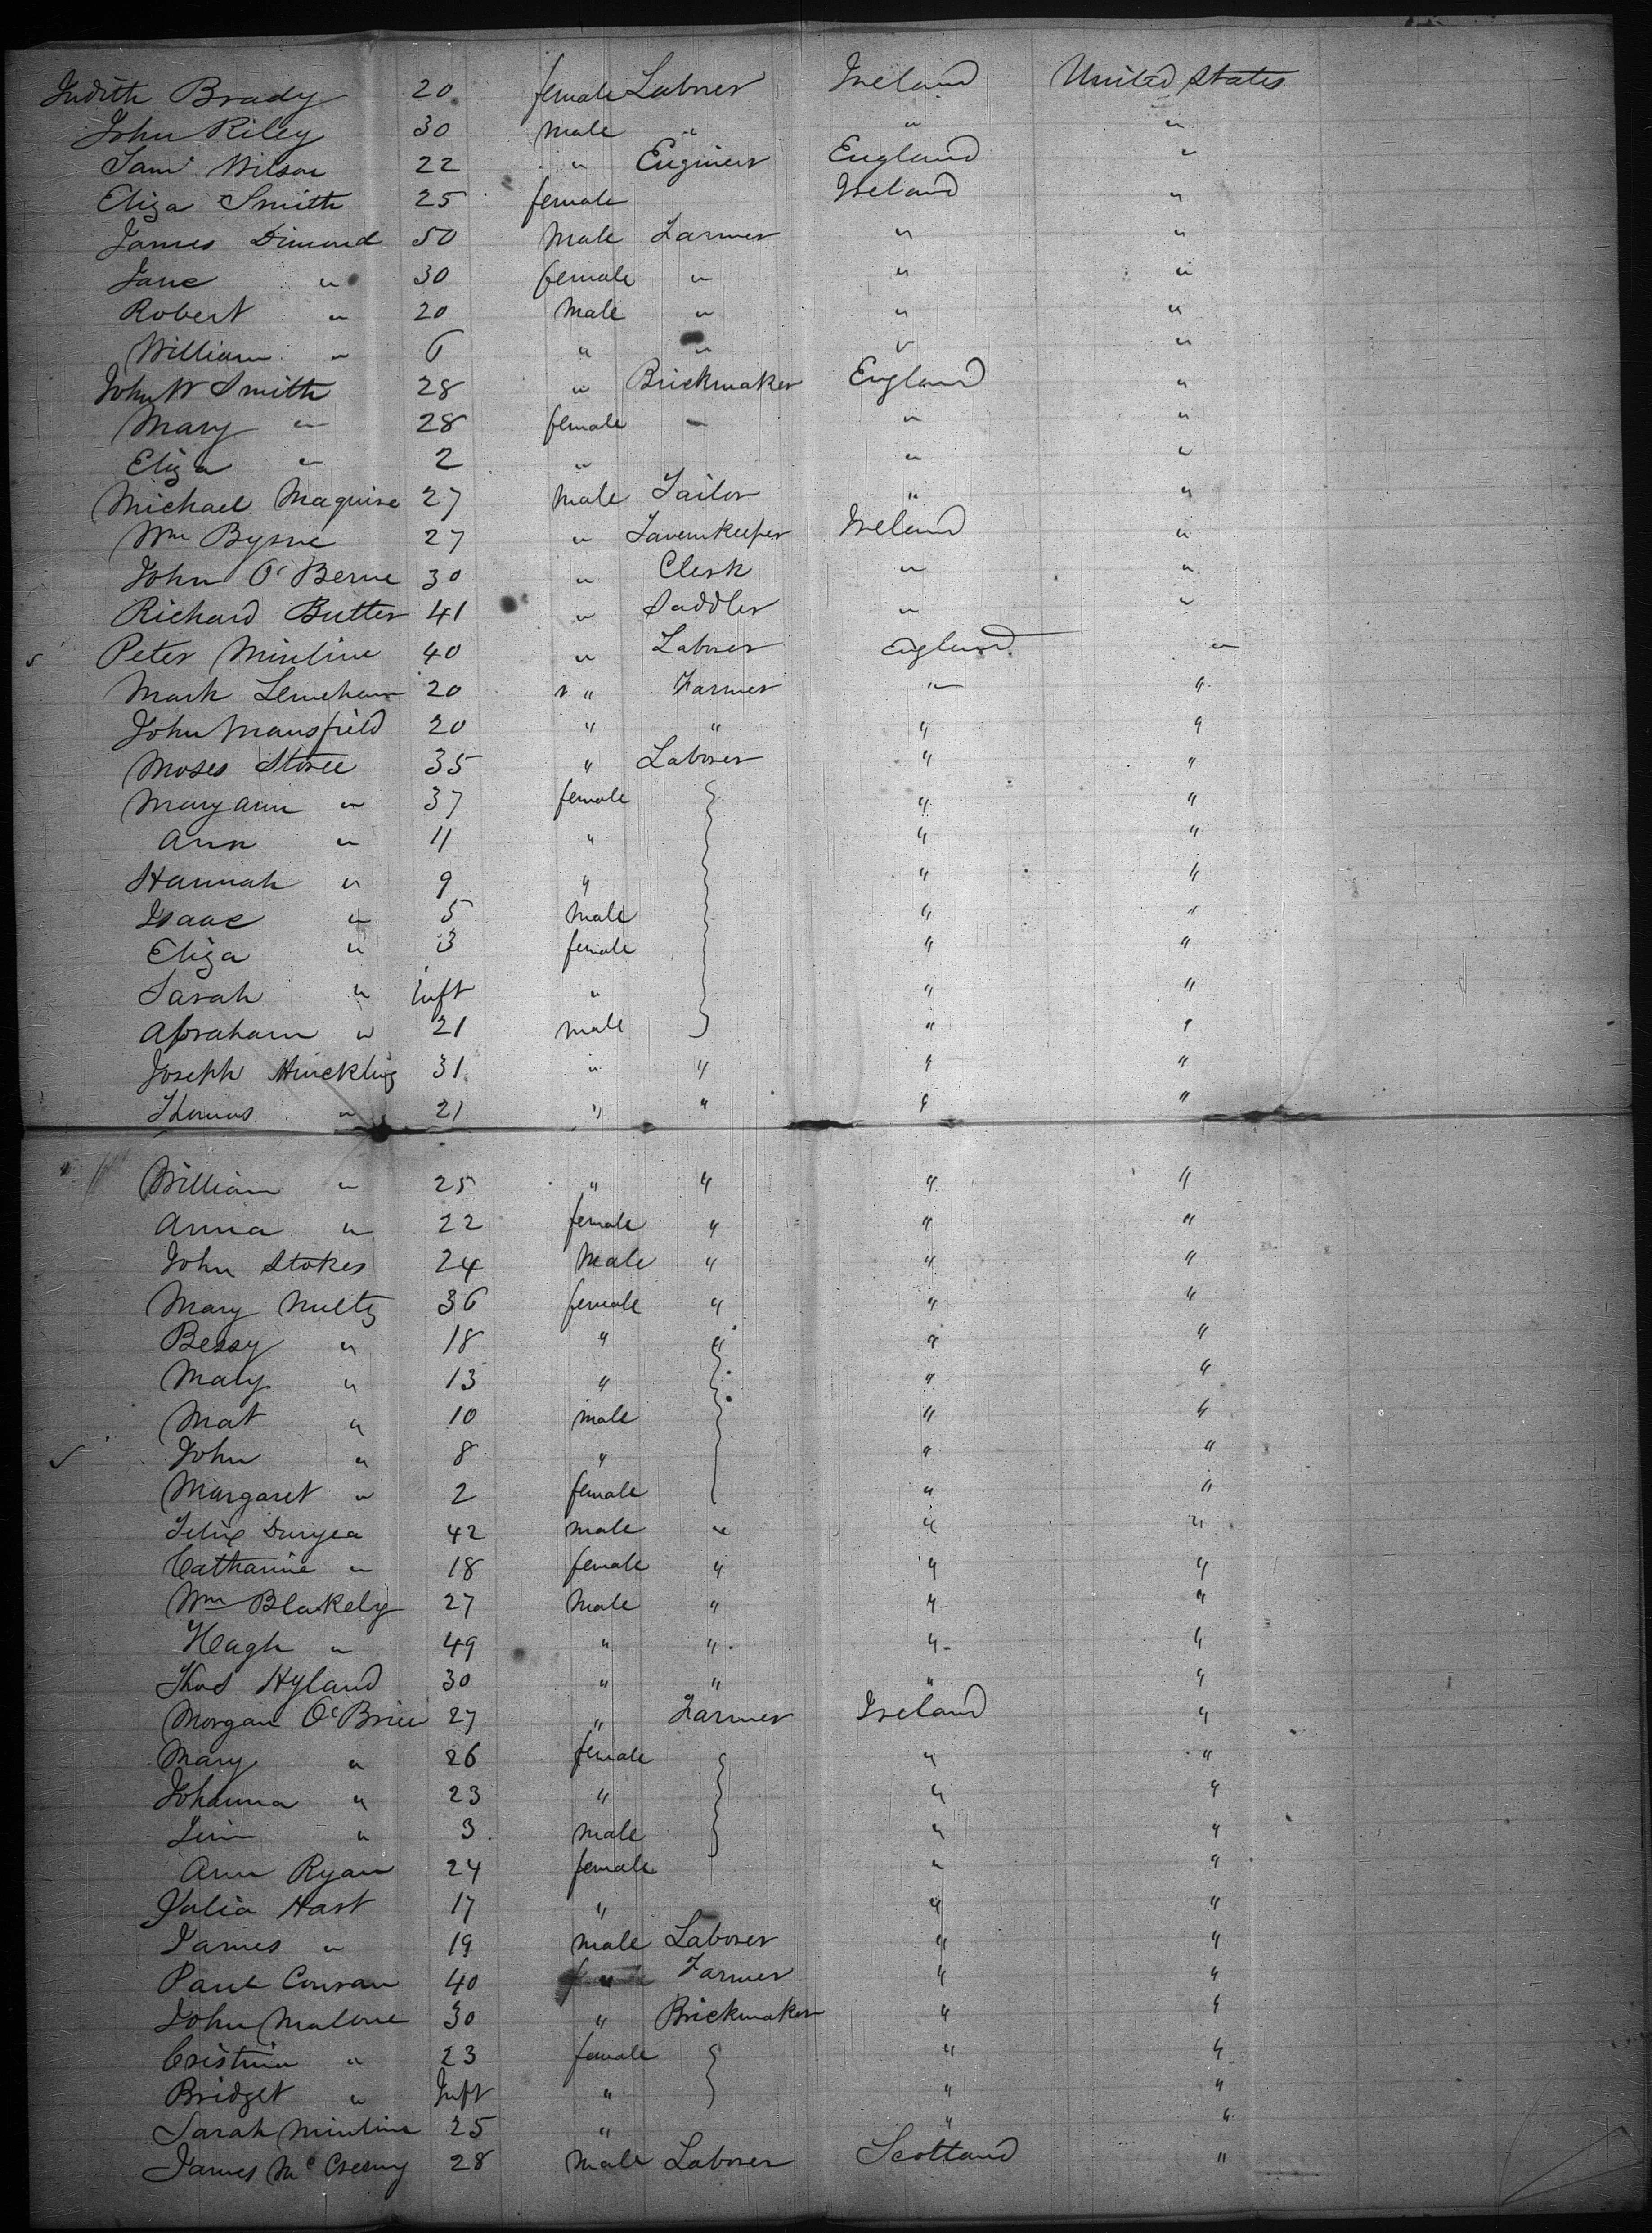 Judith Brady 20 female Laborer Ireland United States
John Riley 30 male " " "
Saml Wilson 22 " Engineer England "
Eliza Smith 25 female Ireland "
James Dimond 50 Male Farmer " "
Jane " 30 female " " "
Robert " 20 Male " " "
William " 6 " " " "
John W Smith 28 " Brickmaker England "
Mary " 28 female " " "
Eliza " 2 " " "
Michael Maguire 27 Male Tailor " "
Wm Byrne 27 " Tavernkeeper Ireland "
John O'Berne 30 " Clerk " "
Richard Butter 41 " Saddler " "
Peter Mintine 40 " Laborer England "
Mark Leneham 20 " Farmer " "
John Mansfield 20 " " " "
Moses Storee 35 " Laborer " "
Mary ann " 37 female " "
Ann " 11 " " "
Hannah " 9 " " "
Isaac " 5 Male " "
Eliza " 3 female " "
Sarah " Inft " " "
Abraham " 21 male " "
Joseph Hinckling 31 " " " "
Thomas " 21 " " " "
William " 25 " " " "
Anna " 22 female " " "
John Stokes 24 Male " " "
Mary Nulty 36 female " " "
Bessy " 18 " " " "
Mary " 13 " " "
Mat " 10 male " "
John " 8 " " "
Margaret " 2 female " "
Felix Duryea 42 male " " "
Catharine " 18 female " " "
Wm Blakely 27 Male " " "
Heagh " 49 " " " "
Thos Hyland 30 " " " "
Morgan O'Brien 27 " Farmer Ireland "
Mary " 26 female " "
Johanna " 23 " " "
" 3 male " "
Ann Ryan 24 female " "
Julia Hart 17 " " "
James " 19 male Laborer " "
Paul Conran 40 " Farmer " "
John Malone 30 " Brickmaker " "
Cristina " 23 female " "
Bridget " Inft " " "
Sarah Mintine 25 " " "
James Mc 28 Male Laborer Scotland "